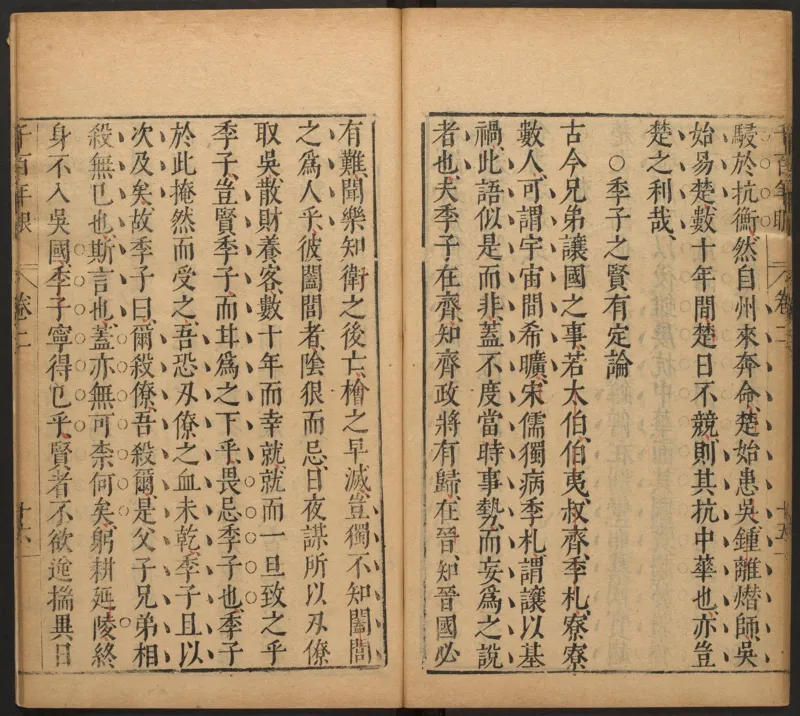 千百年眼 卷二 十五
駸於抗衡然自州來奔命楚始患吳鍾離熸師吳
始易楚數十年間楚日不競則其抗中華也亦豈
楚之利哉
○季子之賢有定論
古今兄弟讓國之事若太伯伯夷叔齊季札寮寮
數人可謂宇宙間希曠宋儒獨病季札謂讓以基
禍此語似是而非蓋不度當時事勢而妄爲之說
者也夫季子在齊知齊政將有歸在晉知晉國必
有難聞樂知衛之後亡檜之早滅豈獨不知闔閭
之爲人乎彼闔閭者陰狠而忌日夜謀所以刃僚
取吳散財養客數十年而幸就就而一旦致之乎
季子豈賢季子而甘爲之下乎畏忌季子也季子
於此掩然而受之吾恐刃僚之血未乾季子且以
次及矣故季子曰爾殺僚吾殺爾是父子兄弟相
殺無已也斯言也蓋亦無可柰何矣躬耕延陵終
身不入吳國季子寧得已乎賢者不欲逆揣異日
千百年眼 卷二 十六